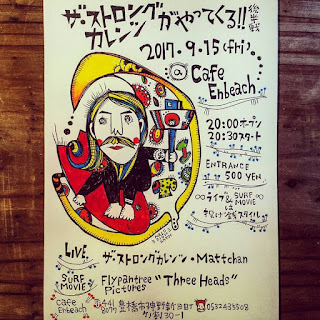 ザ・ストロングがやってくる!!
後半戦
カレンツ
2017・9・15(fri)
@ Cafe
Enbeach
20:00オープン
20:30スタート
ENTRANCE
500 YEN
∞ライブ& SURF MOVIE
は
投げ銭スタイル
LIVE
ザ・ストロングカレンツ・Mattchan
SURF
MOVIE
Flypantree "Three Heads"
Pictures
cafe
Enbeach
〒441-
8077
豊橋市神野新田町
0532435508